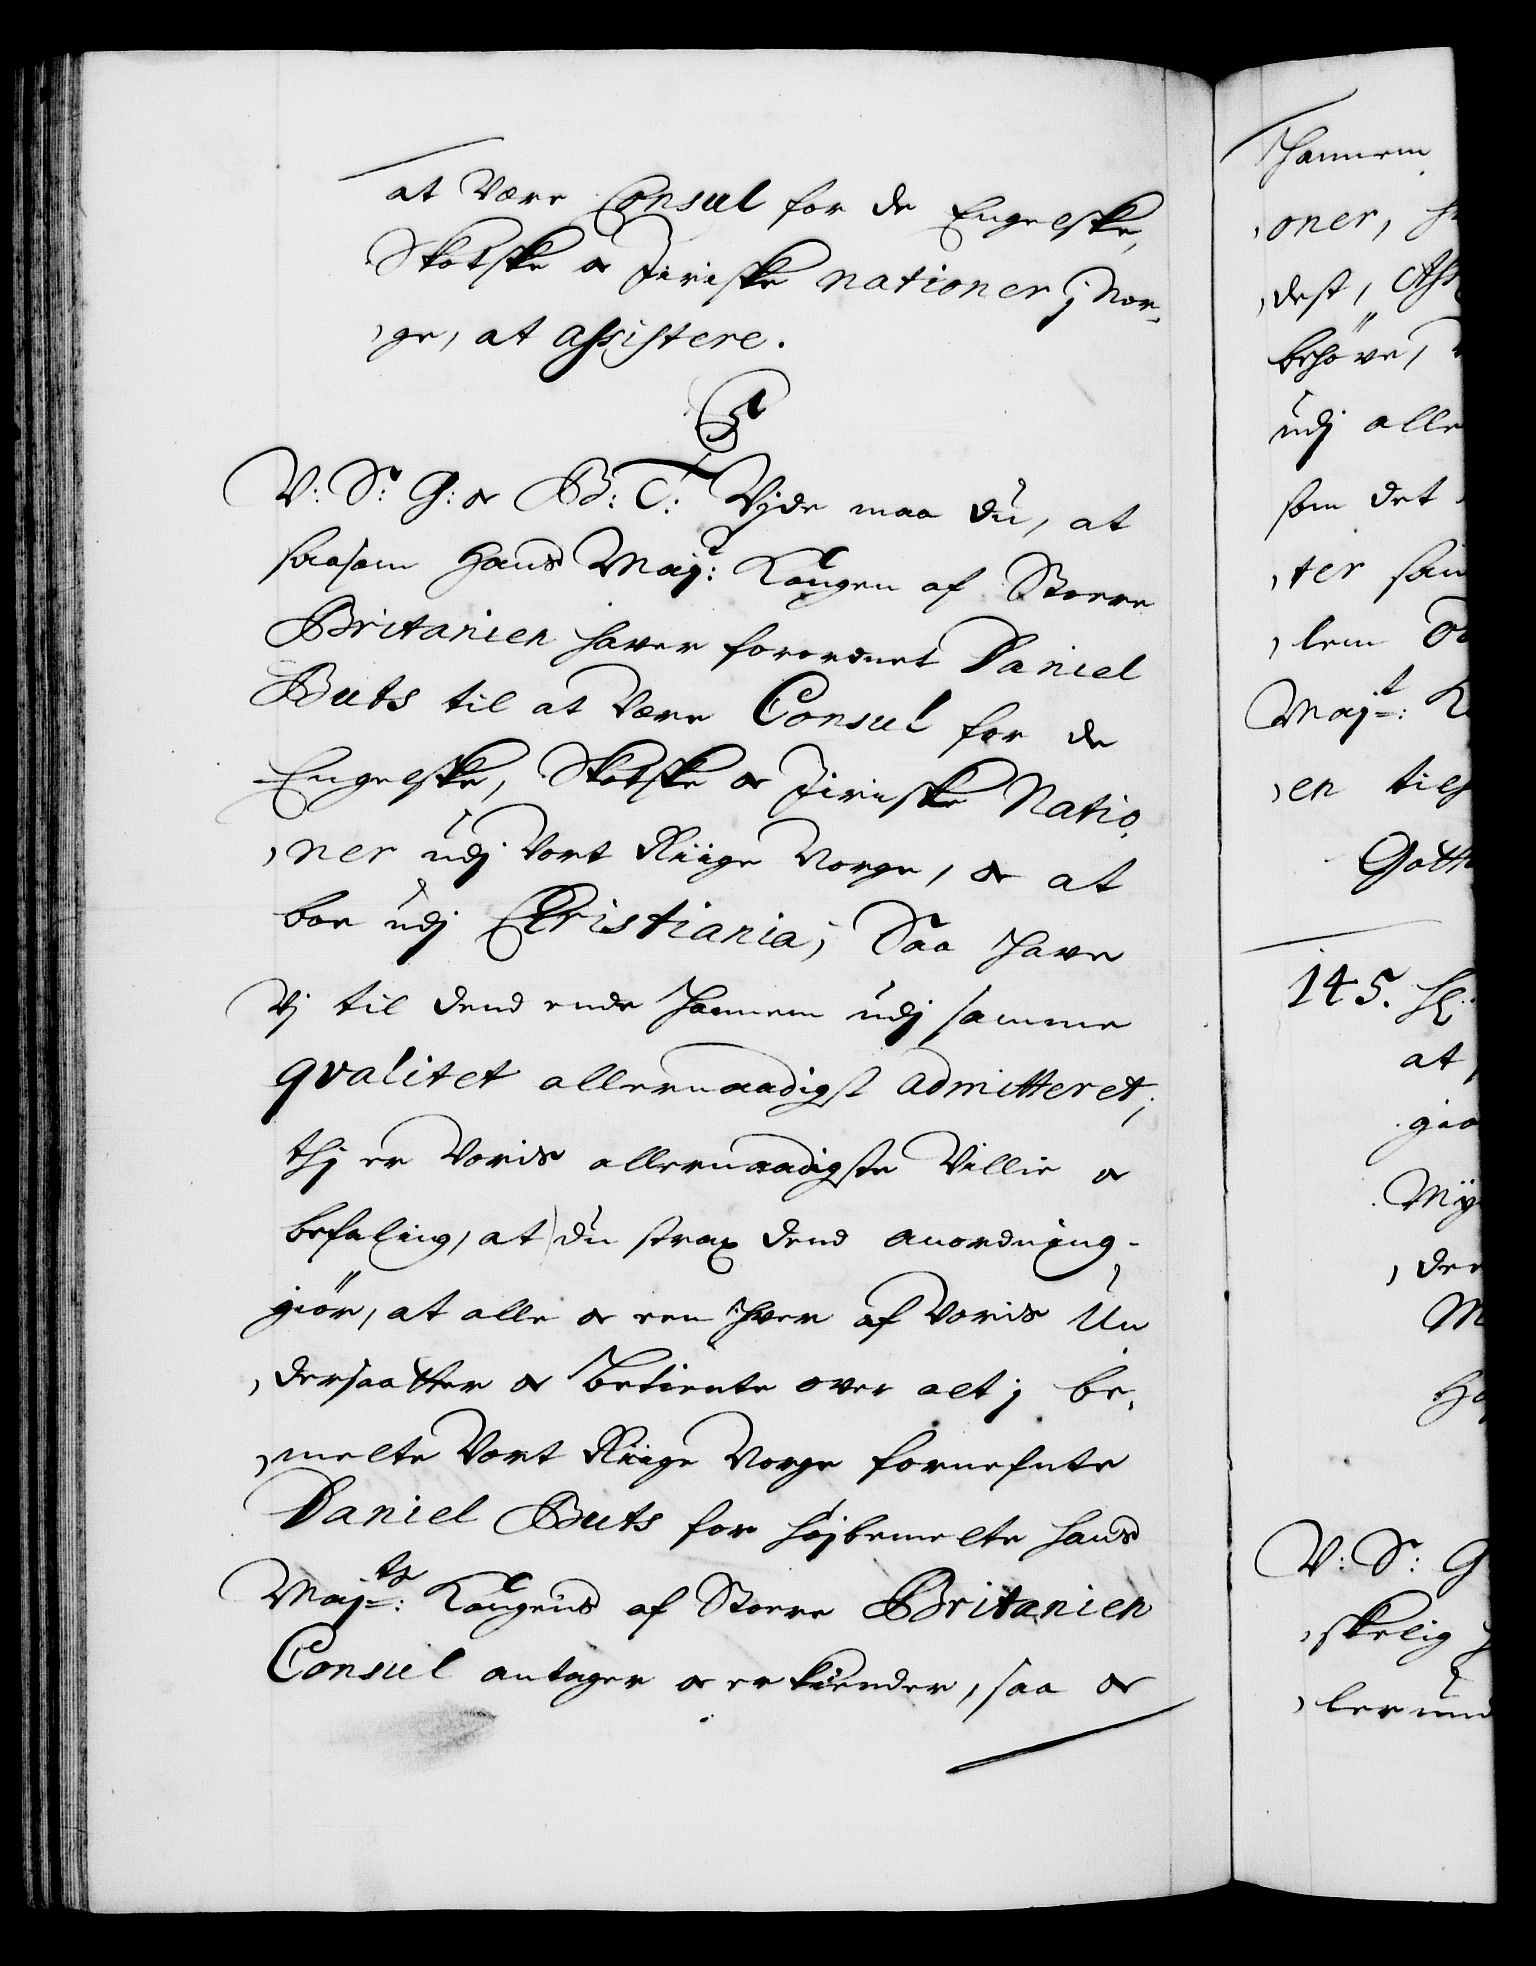 at være Consul for de Engelske,
Skotske og Jiriske nationer j Nor-
ge, at assistere.
V: S: G: og B: T: Vjde maa du, at
saasom Hans Majt: Kongen af Storre
Britanien haver forordnet Daniel
Buts til at være Consul for de
Engelske, Skotske og Jiriske Natio,
,ner udj Vort Riige Norge, og at
boe udj Christiania; Saa have
Vj til dend ende hannem udj samme
qvalitet allernaadigst admitteret;
thj er Voris allernaadigste Villie og
befaling, at du strax dend anordning
giör, at alle og een hver af Voris Un
,dersaatter og Betiente over alt j be,
,melte Vort Riige Norge fornefnte
Daniel Buts for højbemelte Hans
Majts: Kongens af Storre Britanien
Consul antager og erkiender, saa og
Hannem
,oner,
,dest,
behöve,
udj alle
som det
,ter
,lem
Majt:
,en
145.
at
V: S: G
,skelig